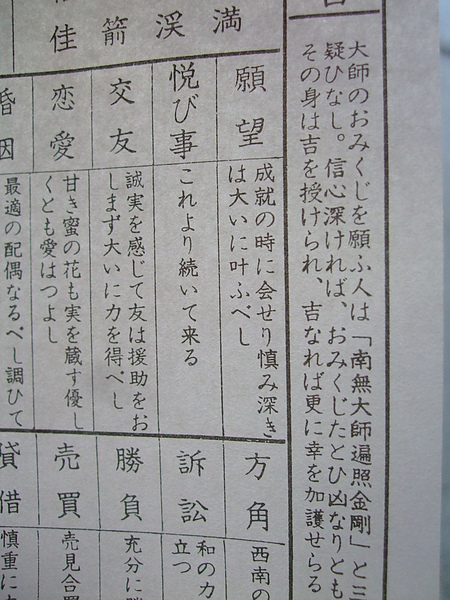 大師のおみくじを願ふ人は「南無大師遍照金剛」と三
疑ひなし。信心深ければ、おみくじたとひ凶なりとも
その身は吉を授けられ、吉なれば更に幸を加護せらる
満
渓
箭
佳
願望
成就の時に会せり慎み深き
は大いに叶ふべし
悦び事
これより続いて来る
交友
誠実を感じて友は援助をお
しまず大いに力を得べし
恋愛
甘き蜜の花も実を蔵す優し
くとも愛はつよし
婚因
最適の配偶なるべし調ひて
方角
西南の
訴訟
和のカ
立つ
勝負
充分に
売買
売見合買
貸借
慎重に